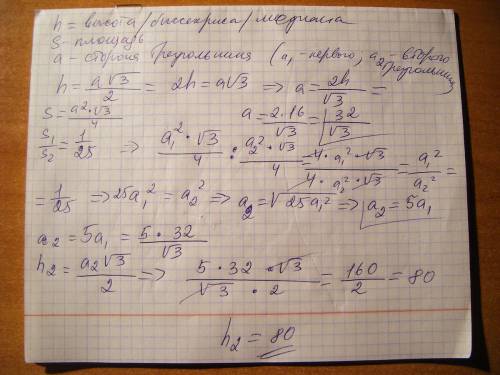 h = высота/биссектриса/медиана
S - площадь
a - сторона треугольника (a₁ - первого, a₂ - второго треугольника)
h = a√3/2 = 2h = a√3 ⇒ a = 2h/√3 =
S = a²·√3/4
a = 2·16/√3 = 32/√3
S₁/S₂ = 1/25 ⇒ a₁²·√3/4 : a₂²·√3/4 = 4·a₁²·√3/4·a₂²·√3 = a₁²/a₂² =
= 1/25 ⇒ 25a₁² = a₂² ⇒ a₂ = √25a₁² ⇒ a₂ = 5a₁
a₂ = 5a₁ = 5·32/√3
h₂ = a₂√3/2 ⇒ 5·32·√3/√3·2 = 160/2 = 80
h₂ = 80